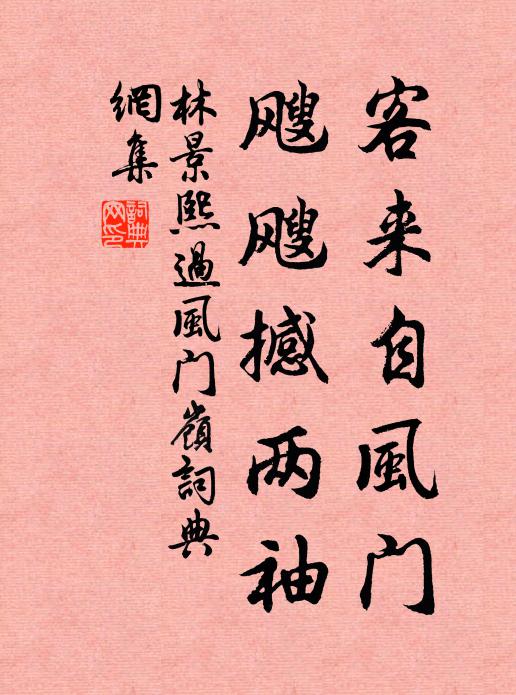 客来自風门
飕飕撼两袖
林景熙過風门嶺詞典
網集
詞典
网印